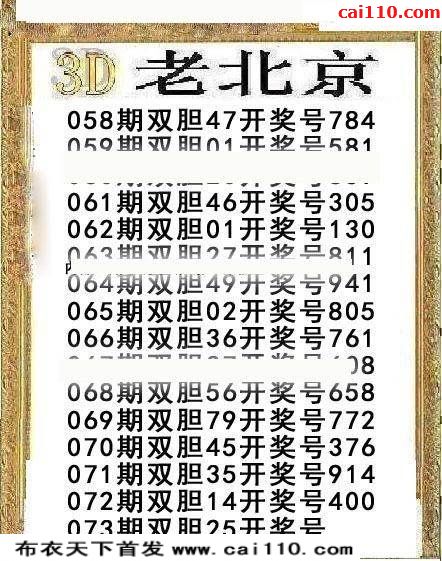 cai110.com
3D 老北京
058期双胆47开奖号784
059期双胆01开奖号581
061期双胆46开奖号305
062期双胆01开奖号130
063期双胆27开奖号811
064期双胆49开奖号941
065期双胆02开奖号805
066期双胆36开奖号761
068期双胆56开奖号658
069期双胆79开奖号772
070期双胆45开奖号376
071期双胆35开奖号914
072期双胆14开奖号400
073期双胆25开奖号
布衣天下首发 www.cai110.com